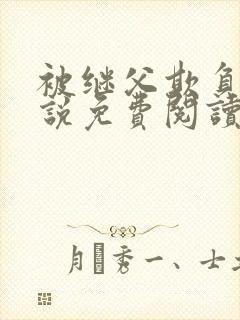 被继父欺负
說免費閱讀
月秀一、士